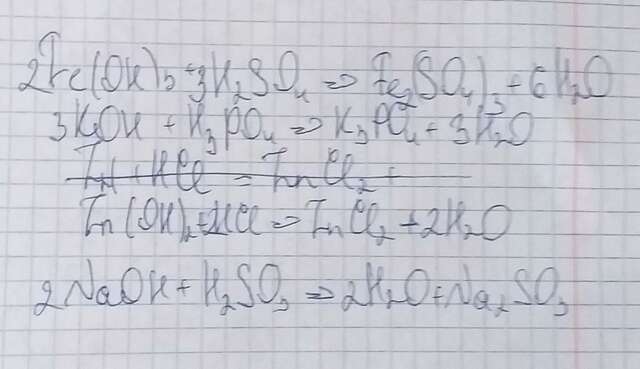 2Fe(OH)3+3H2SO4=>Fe2(SO4)3+6H2O
3KOH+H3PO4=>K3PO4+3H2O
Zn+HCl=ZnCl2+
Zn(OH)2+2HCl=>ZnCl2+2H2O
2NaOH+H2SO3=>2H2O+Na2SO3